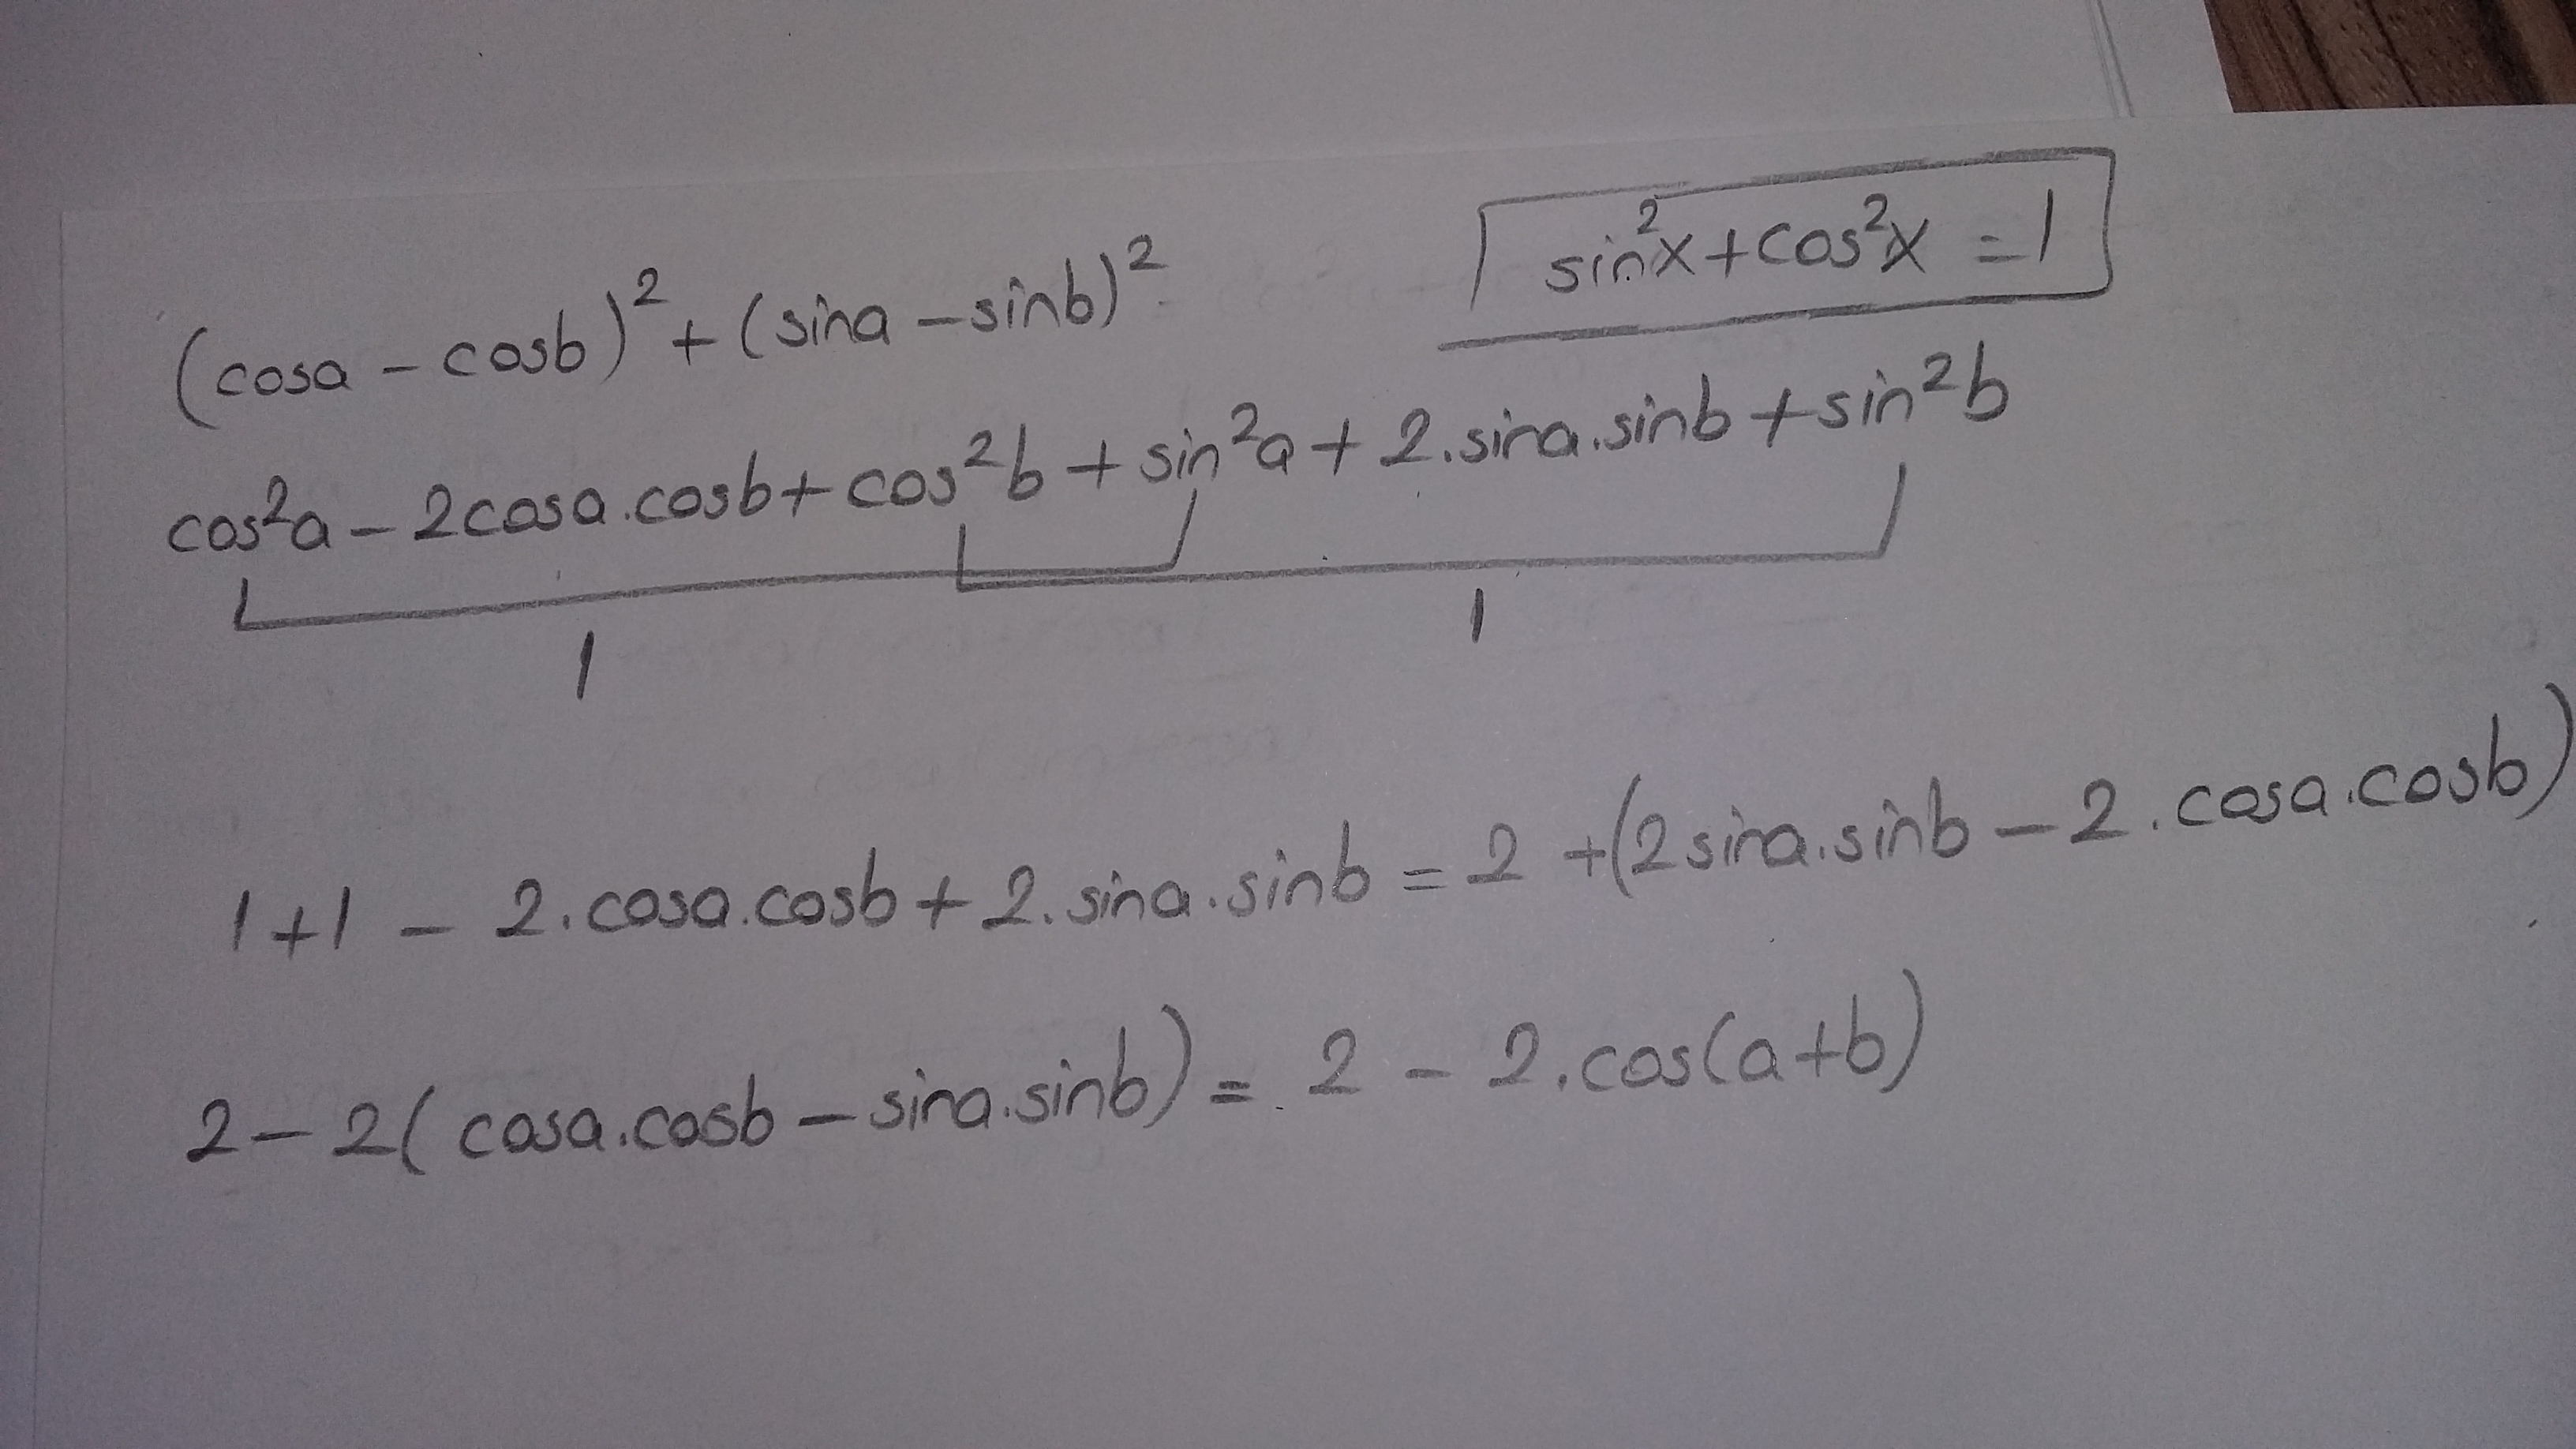 sin²x+cos²x = 1
(cosa – cosb)² + (sina – sinb)²
cos²a – 2cosa.cosb + cos²b + sin²a + 2.sina.sinb + sin²b
1 1
1+1 – 2.cosa.cosb + 2.sina.sinb = 2 + (2sina.sinb – 2.cosa.cosb)
2 – 2(cosa.cosb – sina.sinb) = 2 – 2.cos(a+b)